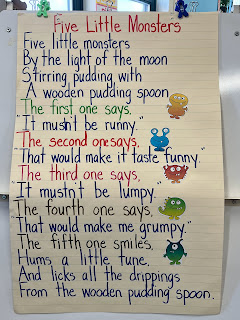 Five Little Monsters
Five little monsters
By the light of the moon
Stirring pudding with
A wooden pudding spoon
The first one says,
"It mustn't be runny."
The second one says,
That would make it taste funny."
The third one says,
It mustn't be lumpy."
The fourth one says,
That would make me grumpy."
The fifth one smiles,
Hums a little tune,
And licks all the drippings
From the wooden pudding spoon.